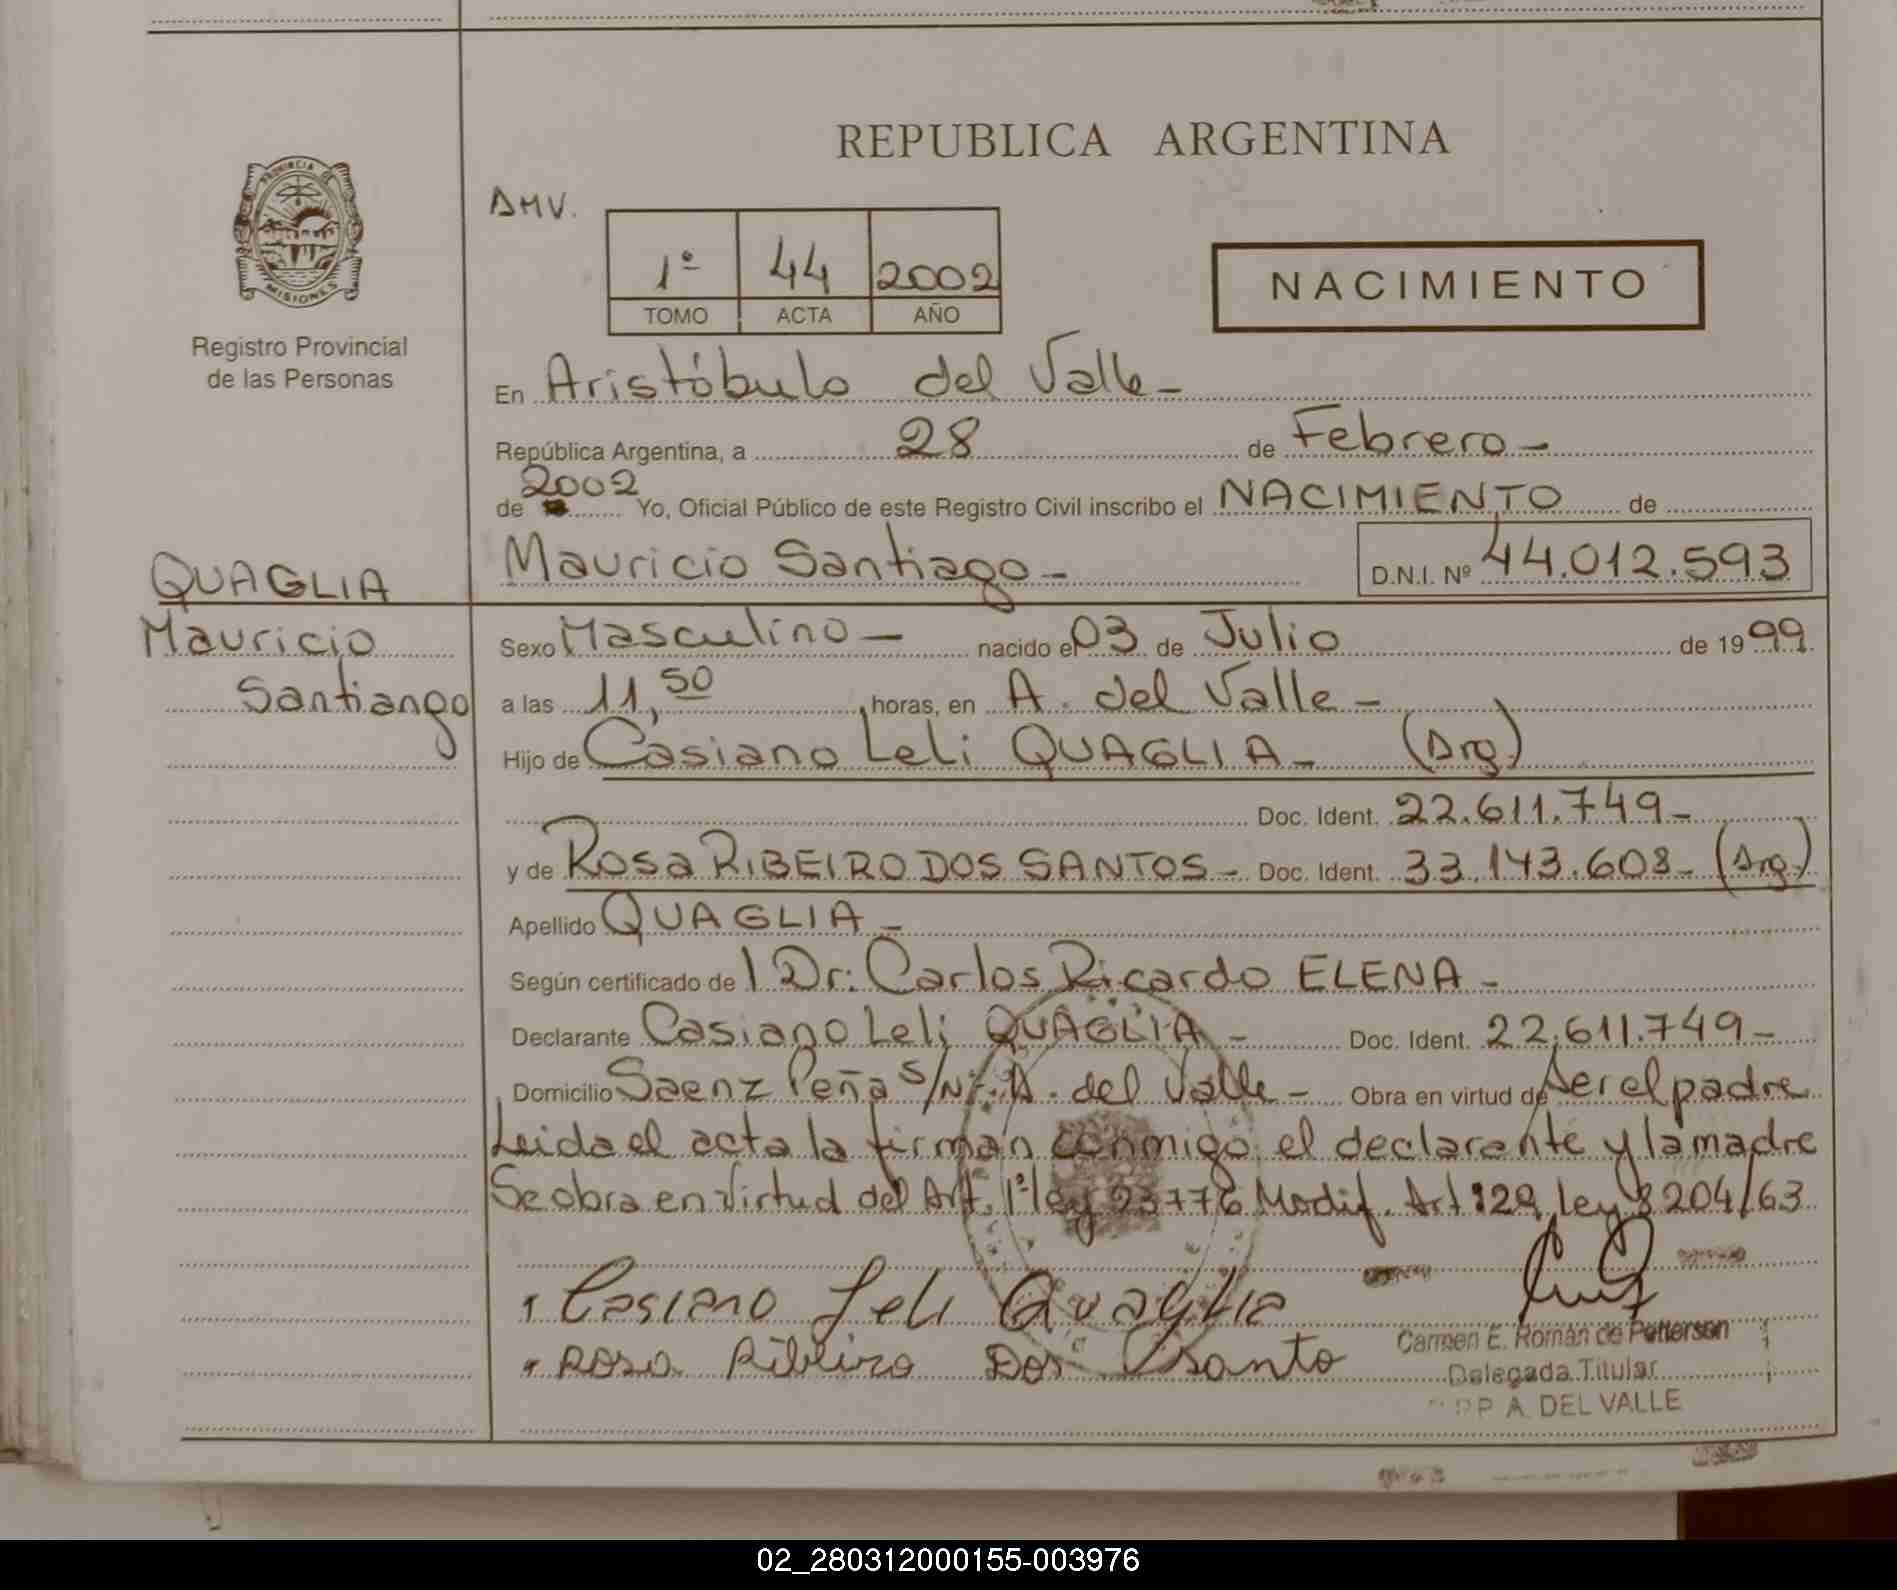 REPUBLICA ARGENTINA
PROVINCIA DE
MISIONES
Registro Provincial
de las Personas
AMV.
1º 44 2002
TOMO ACTA AÑO
NACIMIENTO
En Aristóbulo del Valle -
República Argentina, a 28 de Febrero -
de 2002 Yo, Oficial Público de este Registro Civil inscribo el NACIMIENTO de
QUAGLIA
Mauricio
Santiango
Mauricio Santiago - D.N.I. Nº 44.012.593
Sexo Masculino - nacido el 03 de Julio de 1999.
a las 11,50 horas, en A. del Valle -
Hijo de Casiano Leli QUAGLIA - (Arg)
Doc. Ident. 22.611.749 -
y de Rosa RIBEIRO DOS SANTOS - Doc. Ident. 33.143.608 - (Arg.)
Apellido QUAGLIA -
Según certificado de l Dr: Carlos Ricardo ELENA -
Declarante Casiano Leli QUAGLIA - Doc. Ident. 22.611.749 -
Domicilio Saenz Peña S/Nº. A. del Valle - Obra en virtud de ser el padre
Leida el acta la firman conmigo el declarante y la madre
Se obra en virtud del Art. 1º ley 23776 Modif. Art 29 Ley 8204/63
Casiano Leli Quaglia
Rosa Ribeiro Dos Santo
Carmen E. Román de Petterson
Delegada Titular
A. DEL VALLE
02_280312000155-003976